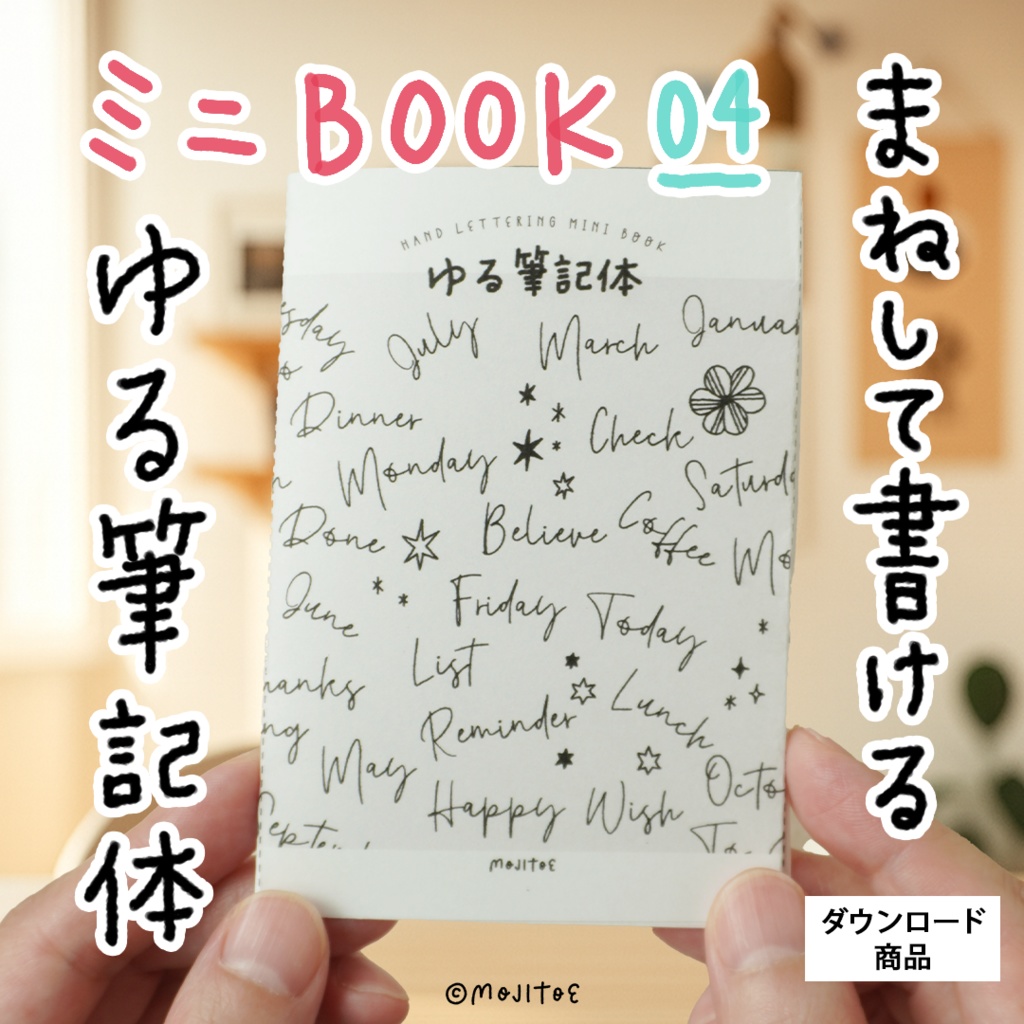 ミニBOOK 04
まねして書ける
ゆる筆記体
HAND LETTERING MINI BOOK
ゆる筆記体
sday July March Januar
Dinner Check
Monday Saturd
Done Believe Coffee Mo
June Friday Today
hanks List
ng Reminder Lunch
May Happy Wish Octo
Septem
MOJITOE
ダウンロード
商品
©MOJITOE